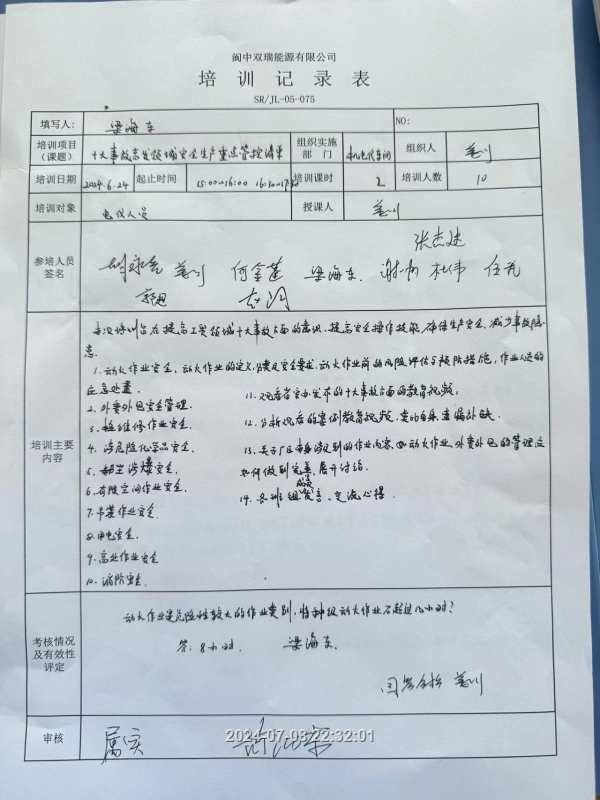 阆中双瑞能源有限公司
培训记录表
SR/JL-05-075
填写人: 梁海东 NO:
培训项目(课题) 十大事故高发领域安全生产重点管控清单 组织实施部门 机电仪车间 组织人
培训日期 2024.6.24 起止时间 15:00~16:00 16:30~17:30 培训课时 2 培训人数 10
培训对象 电仪人员 授课人
参培人员签名
张杰
何金莲 梁海东 杜伟
培训主要内容
本次培训旨在提高工贸领域十大事故方面的意识、提高安全操作技能、确保生产安全、减少事故隐
患.
1. 动火作业安全、动火作业的定义,分类及安全要求、动火作业前的风险评估与预防措施,作业人员的
应急处置.
2. 外委外包安全管理.
3. 检维修作业安全.
4. 涉危险化学品安全
5. 粉尘涉爆安全.
6. 有限空间作业安全.
7. 吊装作业安全.
8. 用电安全.
9. 高处作业安全
10. 消防安全.
11. 观看省安办发布的十大事故方面的教育视频,
12. 分析观看的案例教育视频,
13. 关于厂区内级别的作业内容,如动火作业、外委外包的管理应
如何做到完善,展开讨论.
14. 各班组成员发言、交流心得.
考核情况及有效性评定
动火作业是危险性较大的作业类别,特种级动火作业不超过几小时?
答: 8小时. 梁海东.
回答合格
审核 属实
2024-07-08 22:32:01